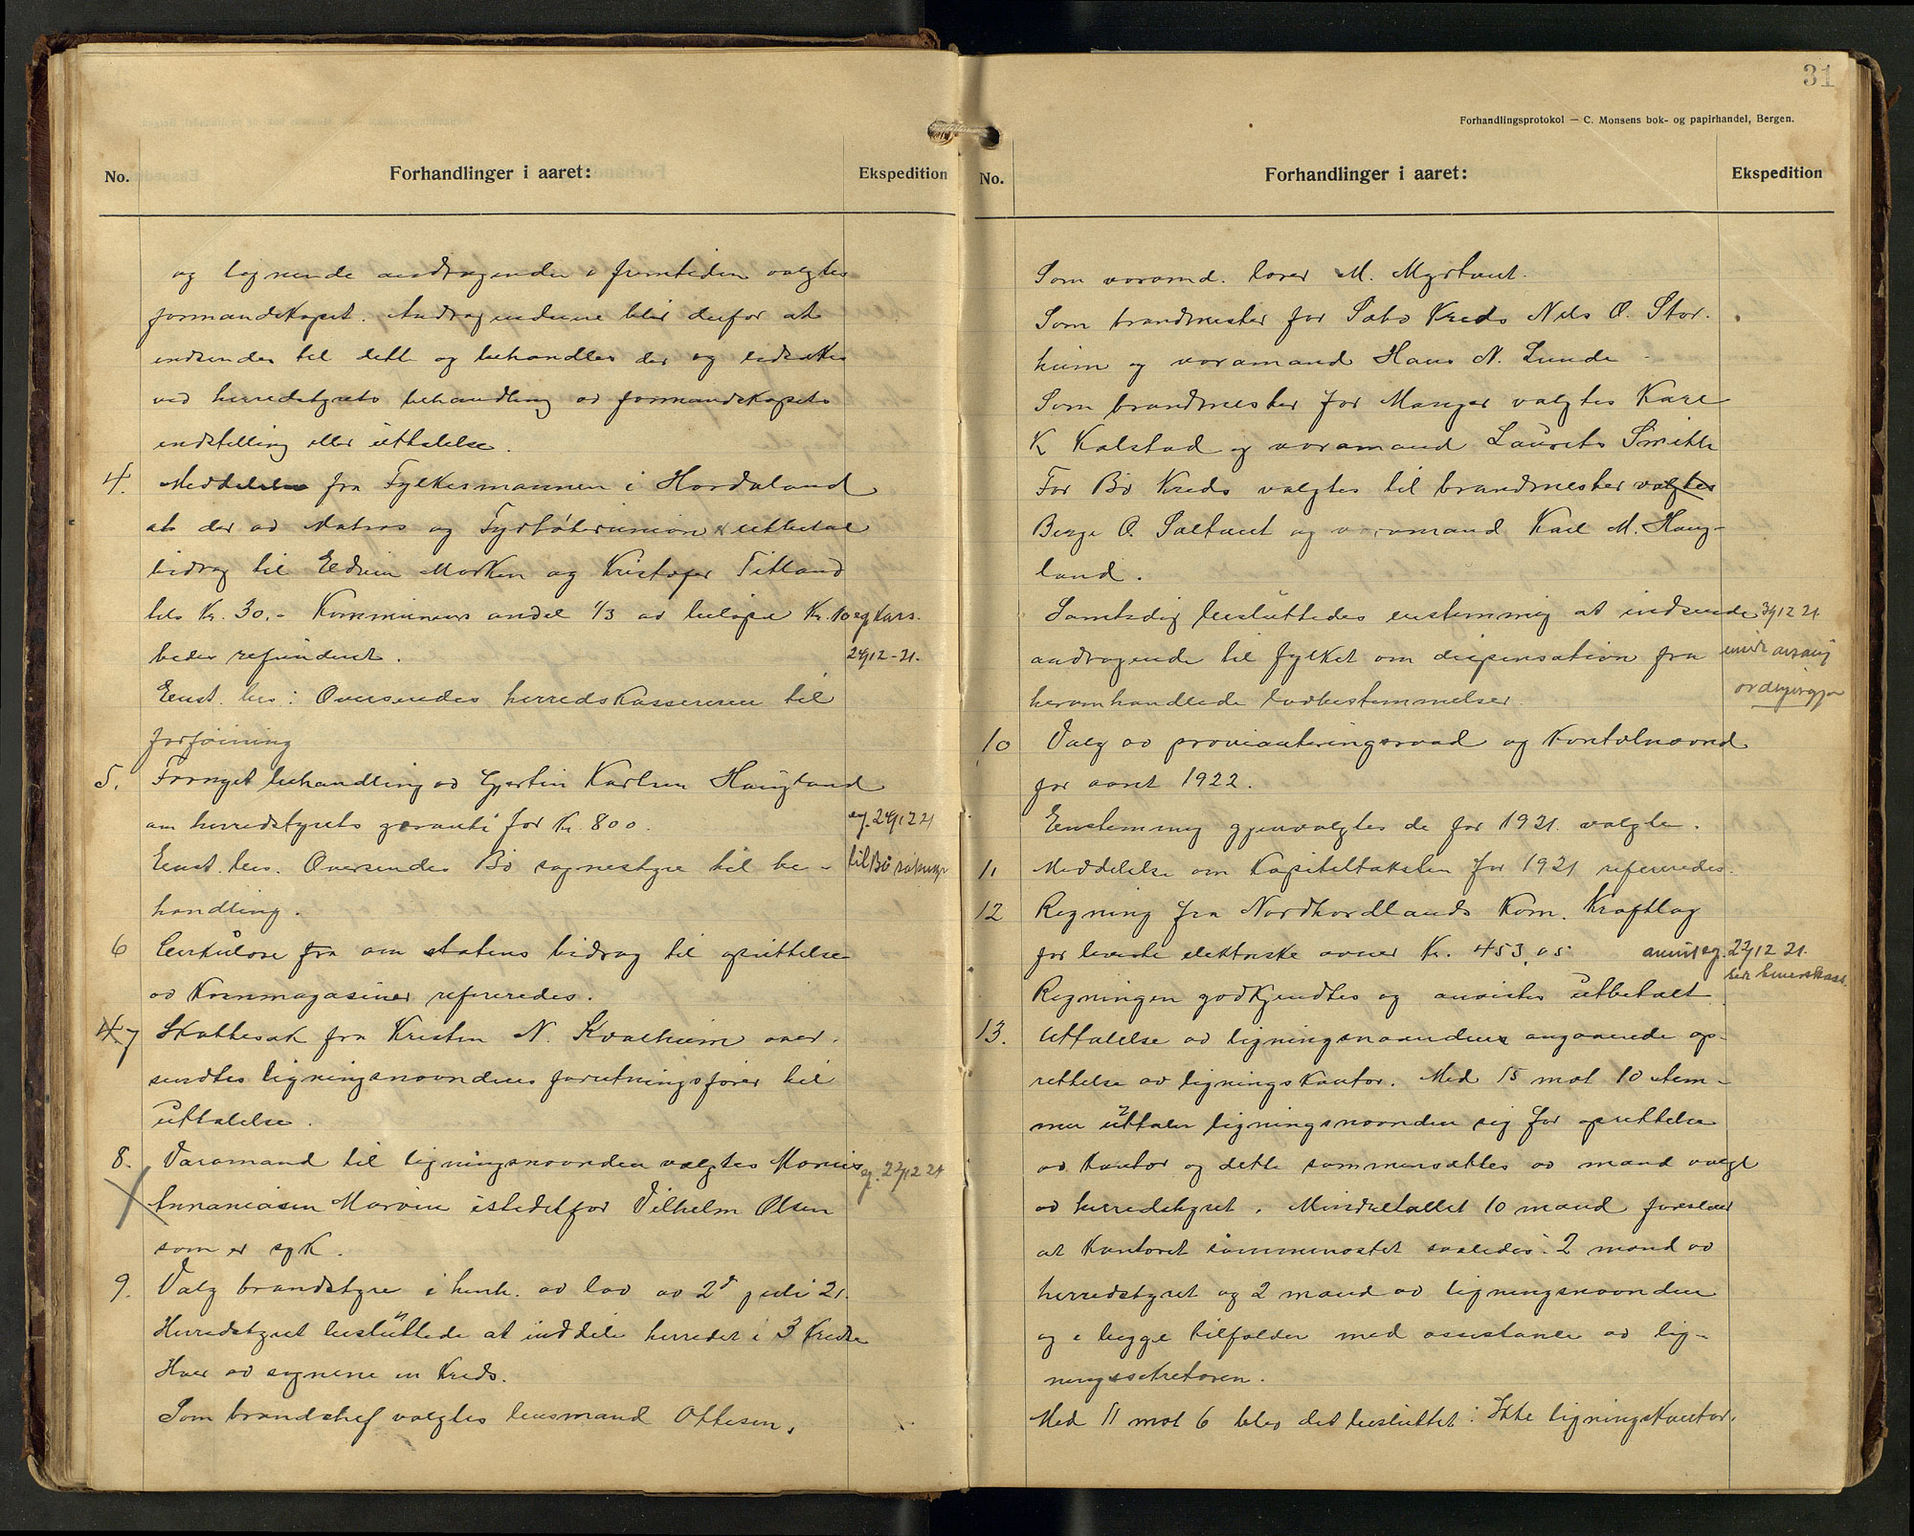 No.
Forhandlinger i aaret:
Ekspedition
og lignende andragender i fremtiden valgtes
formandskapet. Andragenderne blir derfor at
indsendes til dette og behandles der og
ved herredstyrets behandling av formandskapets
indstilling eller uttalelse.
4. Meddelelse fra Fylkesmannen i Hordaland
at der av Matros og Fyrbøterunion er utbetal
bidrag til Eldrein Morken og Kristofer Titland
hver Kr. 30.- Kommunens andel 1/3 av beløpet Kr. 10
bedes refundert.
eg. kass.
24/12-21.
Enst. bes: Oversendes herredskassereren til
forføining
5. Fornyet behandling av Gjertin Karlsen Haugland
om herredstyrets garanti for Kr. 800.
eg. 24/12 21
Enst. bes. Oversendes Bø sognestyre til be-
til Bø
handling.
6 Cirkulære fra om statens bidrag til oprettelse
av Kornmagasiner refereredes.
7 Skattesak fra Kristen N. Kvalheim over-
sendtes ligningsnævndens forretningsfører til
uttalelse.
8. Varamand til ligningsnævnden valgtes Monis
eg. 27/12 21
Annaniasen Marøen istedetfor Vilhelm Olsen
som er syk.
9. Valg brandstyre i henh. av lov av 2d juli 21.
Herredstyret besluttede at inddele herredet i 3 Kredse
Hver av sognene en Kreds.
Som brandchef valgtes lensmand Ottesen.
31
Forhandlingsprotokol — C. Monsens bok- og papirhandel, Bergen.
No.
Forhandlinger i aaret:
Ekspedition
Som varamd. lærer M. Myrtveit.
Som brandmester for Sæbø Kreds Nils O. Stor-
heim og varamand Hans N. Lunde
Som brandmester for Manger valgtes Karl
K Kolstad og varamand Laurits Smith
For Bø Kreds valgtes til brandmester valgtes
Berge O. Sæltveit og varamand Karl M. Haug-
land.
Samtidig besluttedes enstemmig at indsende
31/12 21
andragende til fylket om dispensation fra
heromhandlede lovbestemmelser.
10 Valg av provianteringsraad og Kontrolnævnd
for aaret 1922.
Enstemmig gjenvalgtes de for 1921 valgte.
11 Meddelelse om Kapiteltaksten for 1921 refereredes.
12 Regning fra Nordhordlands Kom. Kraftlag
for leverte elektriske ovner Kr. 453,05
eg. 27/12 21.
Regningen godkjendtes og anvistes utbetalt
13. Uttalelse av ligningsnævnden angaaende op-
rettelse av ligningskontor. Med 15 mot 10 stem-
mer uttaler ligningsnævnden sig for oprettelse
av Kontor og dette sammensættes av mænd valgt
av herredstyret. Mindretallet 10 mand foreslaar
at Kontoret sammensattet saaledes: 2 mand av
herredstyret og 2 mand av ligningsnævnden
og i begge tilfælder med assistance av lig-
ningssekretæren.
Med 11 mot 6 blev det besluttet: Ikke ligningskontor.